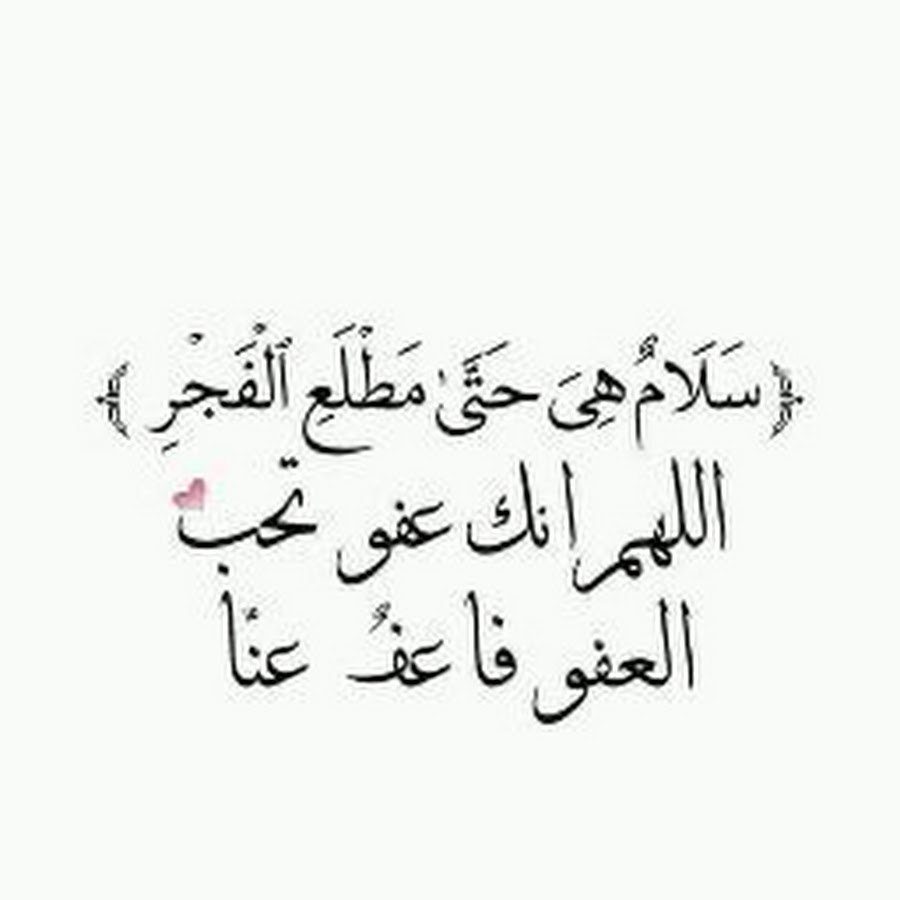 ﴿ سَلَامٌ هِيَ حَتَّىٰ مَطْلَعِ ٱلْفَجْرِ ﴾
اللهم انك عفو تحب
العفو فا عفُ عنا